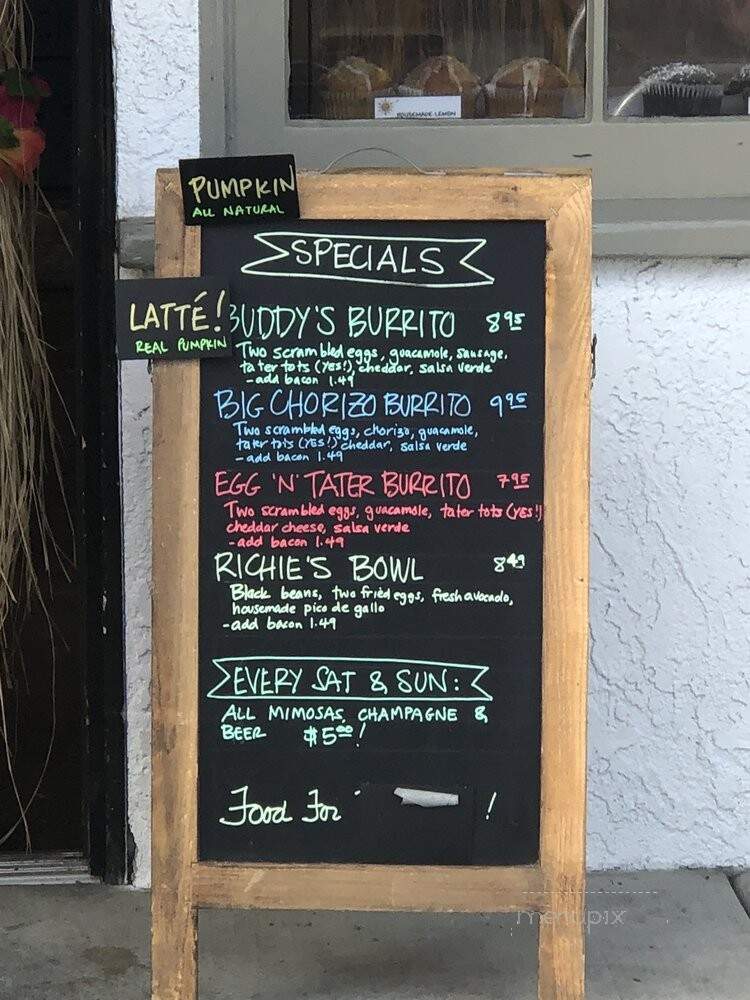 HOUSEMADE LEMON
PUMPKIN
ALL NATURAL
SPECIALS
LATTÉ!
REAL PUMPKIN
BUDDY'S BURRITO 8.95
Two scrambled eggs, guacamole, sausage,
tater tots (YES!), cheddar, salsa verde
- add bacon 1.49
BIG CHORIZO BURRITO 9.95
Two scrambled eggs, chorizo, guacamole,
tater tots (YES!) cheddar, salsa verde
- add bacon 1.49
EGG 'N' TATER BURRITO 7.95
Two scrambled eggs, guacamole, tater tots (YES!)
cheddar cheese, salsa verde
- add bacon 1.49
RICHIE'S BOWL 8.49
Black beans, two fried eggs, fresh avocado,
housemade pico de gallo
- add bacon 1.49
EVERY SAT & SUN:
ALL MIMOSAS, CHAMPAGNE &
BEER $5.00!
Food For !
menupix